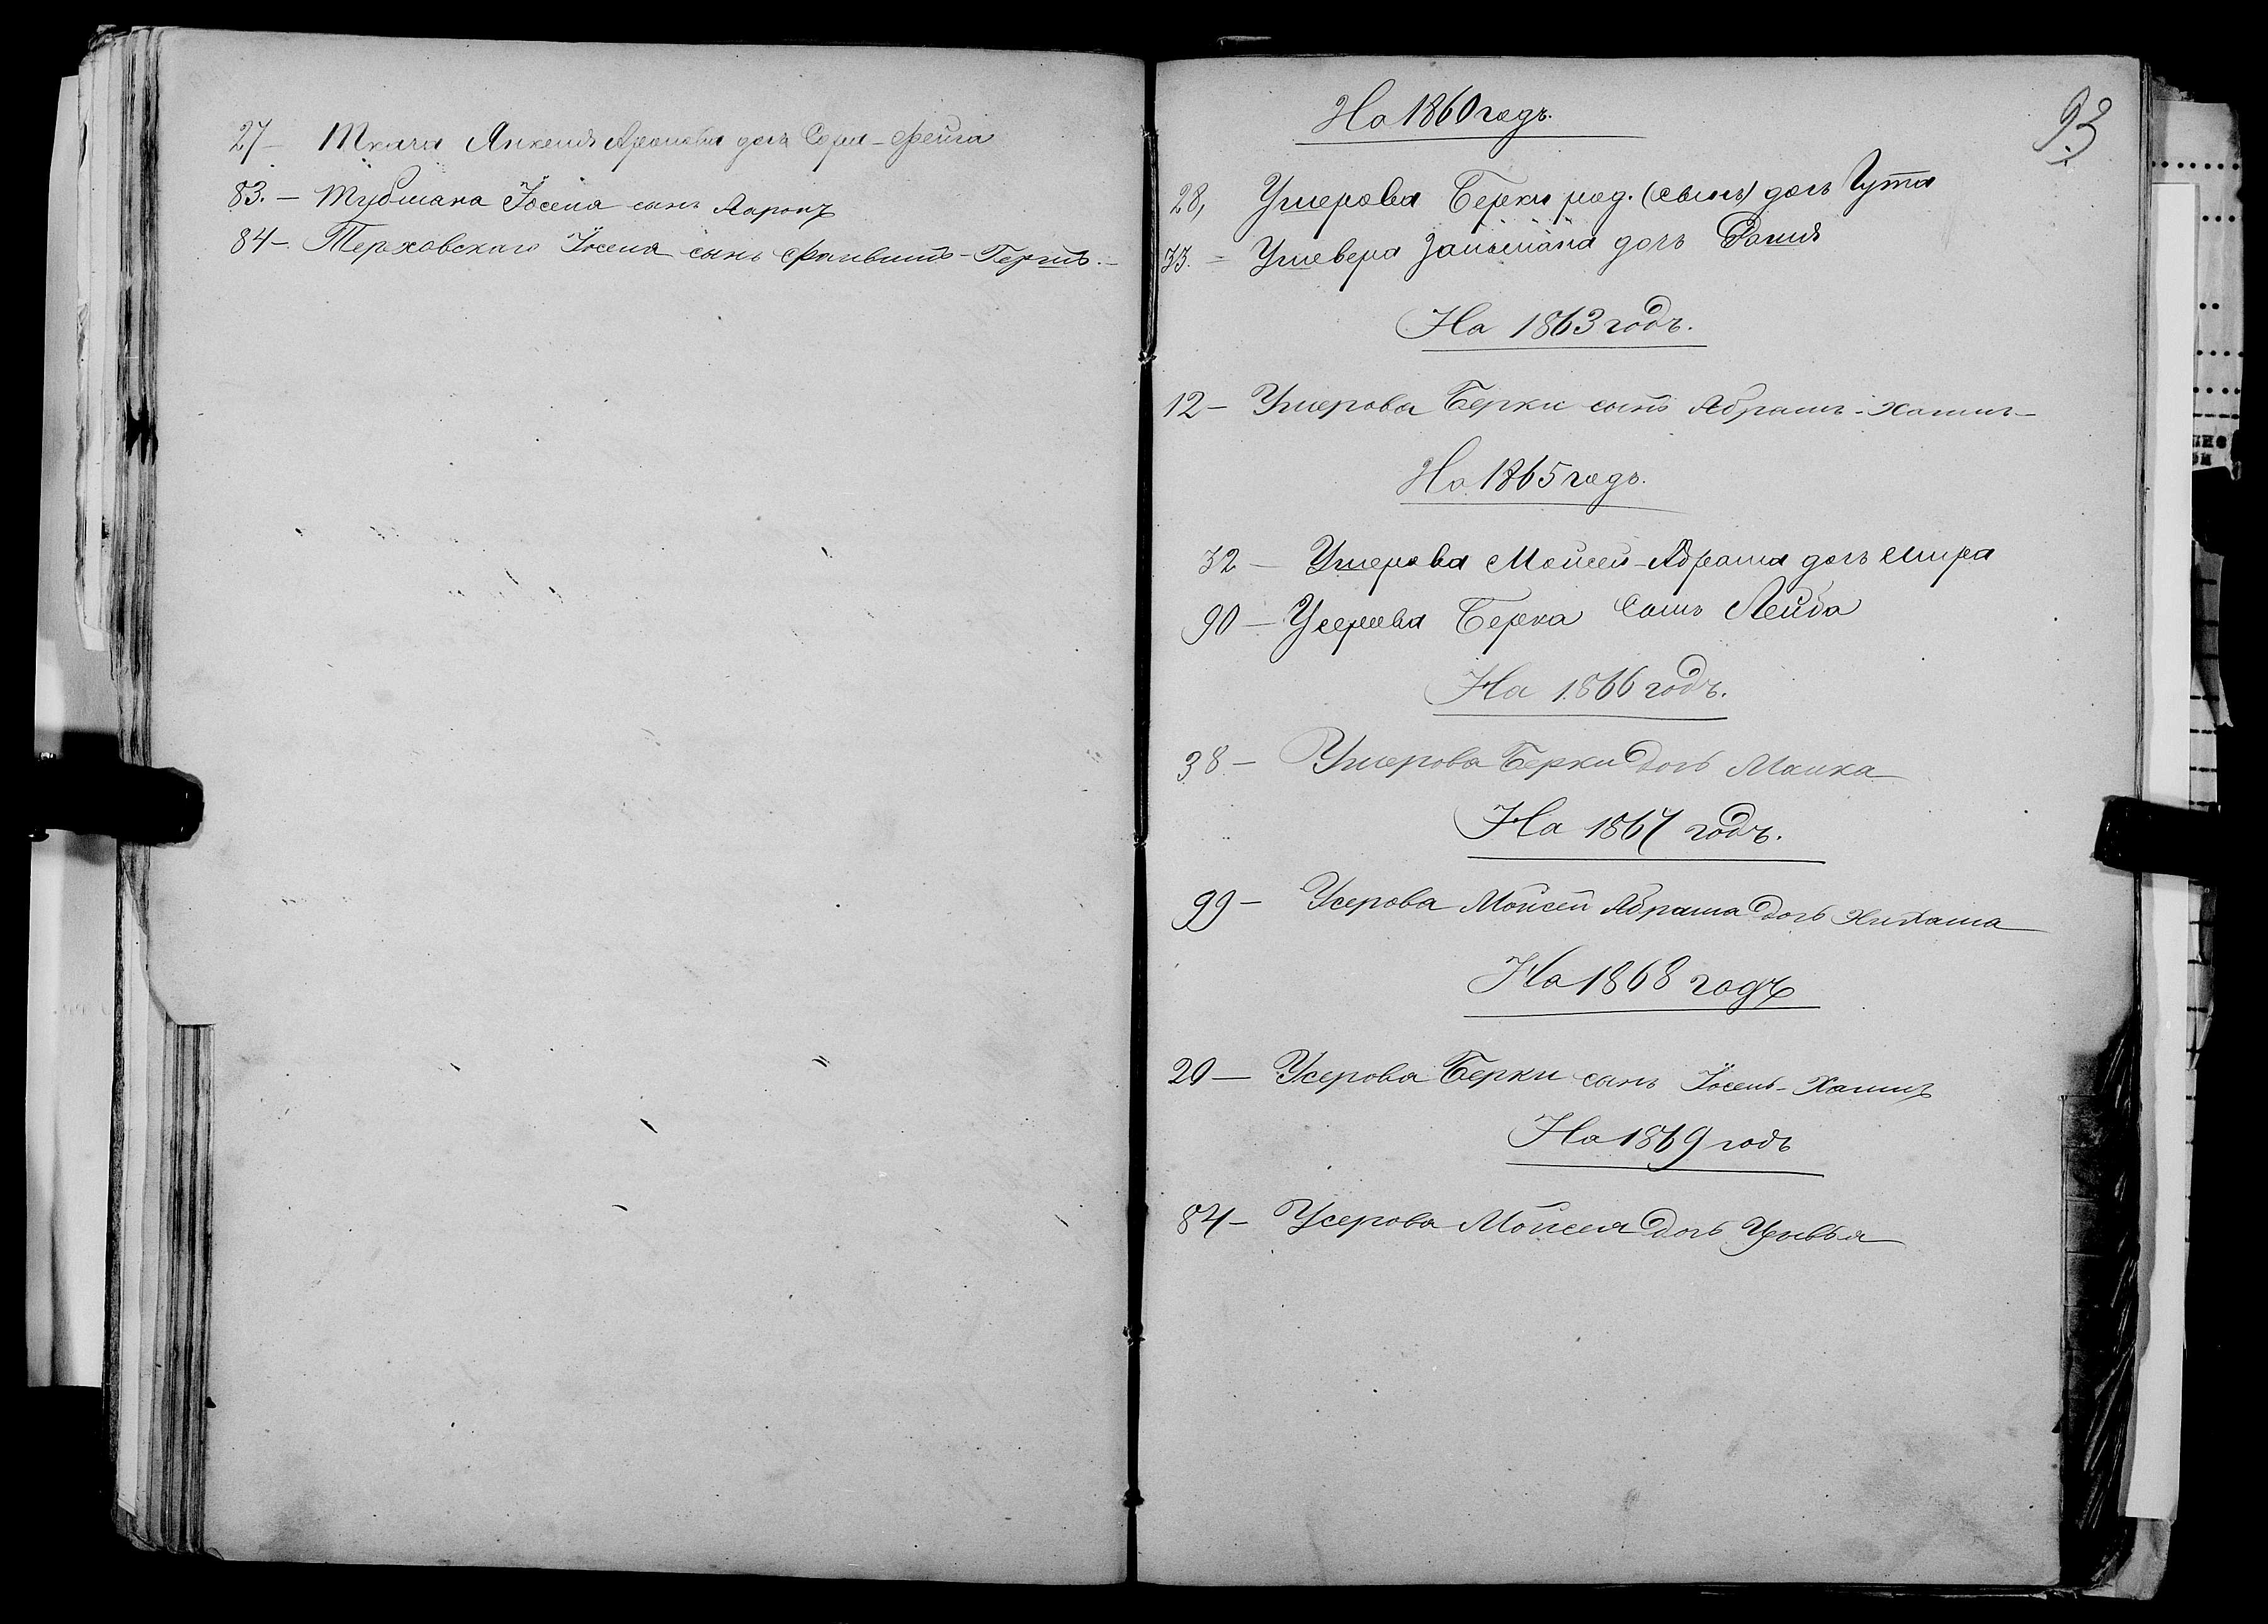 27 – Ткача Янкеля Ароновича дочь Сора-Фейга
83. – Тубмана Іосепа сынъ Ааронъ
84 – Терховскаго Іосепа сынъ Файвишъ-Гершъ. –
93
На 1860 годъ.
28, Ушерова Берки род. (сынъ) дочь Гутта
33. = Ушвера Залмана дочь
На 1863 годъ.
12 – Ушерова Берки сынъ Абрамъ-Хаимъ –
На 1865 годъ.
32 – Ушерова Мойсей-Абрама дочь Мира
90 – Усерова Берка Сынъ Лейба
На 1866 годъ.
38 – Ушерова Берки дочь Малка
На 1867 годъ.
99 – Усерова Мойсей Абрама дочь
На 1868 годъ
20 – Усерова Берки сынъ Іосепъ-Хаимъ
На 1869 годъ
84 – Усерова Мойсея дочь Цывья